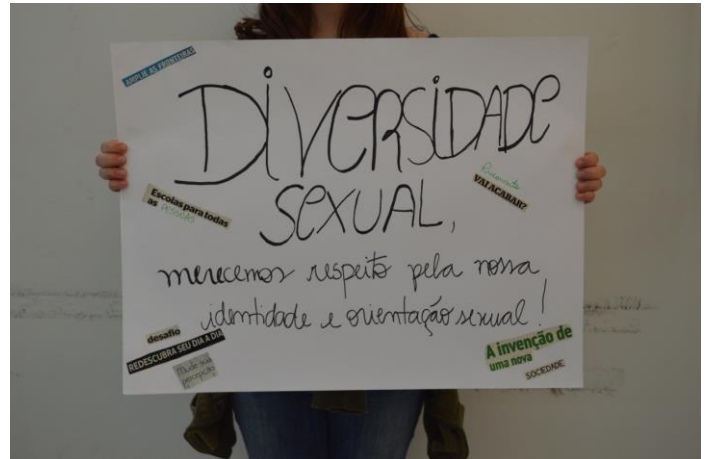 AMPLIE AS FRONTEIRAS
DIVERSIDADE
SEXUAL,
Escolas para todas
as PESSOAS
VAI ACABAR?
merecemos respeito pela nossa
identidade e orientação sexual!
desafio
REDESCUBRA SEU DIA A DIA
Mude sua
percepção
A invenção de
uma nova
SOCIEDADE